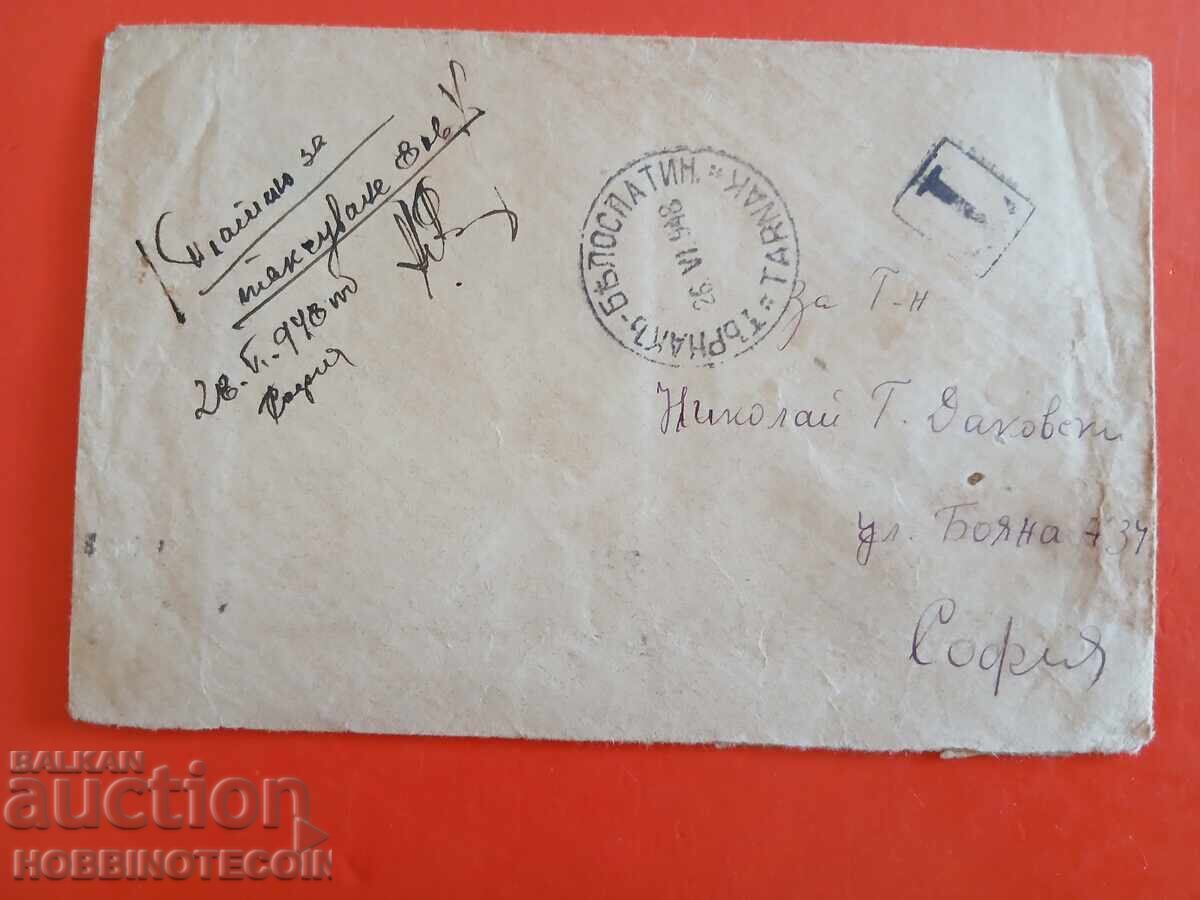 за
таксуване
28.VI.948
София
ТЪРНАКЪ-БѢЛОСЛАТИН. "TARNAK"
26 VI 948
T
За Г-н
Николай Г. Даковски
ул. Бояна
София
BALKAN
auction
HOBBINOTECOIN